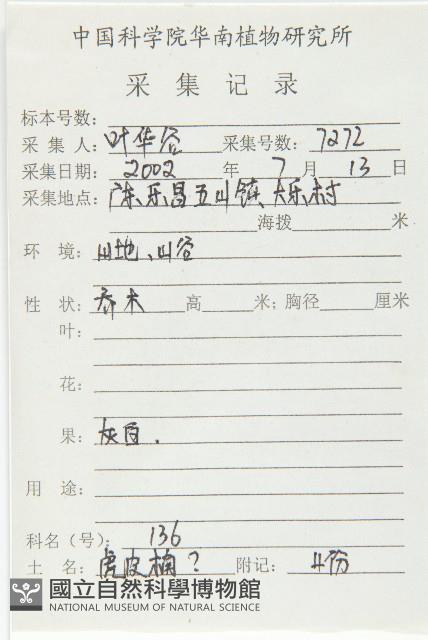 中国科学院华南植物研究所
采集记录
标本号数:
采集人: 叶华谷 采集号数: 7272
采集日期: 2002 年 7 月 13 日
采集地点: 广东、乐昌五山镇、大乐村
海拨 米
环境: 山地、山谷
性状: 乔木 高 米; 胸径 厘米
叶:
花:
果: 灰白.
用途:
科名(号): 136
土名: 虎皮楠? 附记: 4份
國立自然科學博物館
NATIONAL MUSEUM OF NATURAL SCIENCE